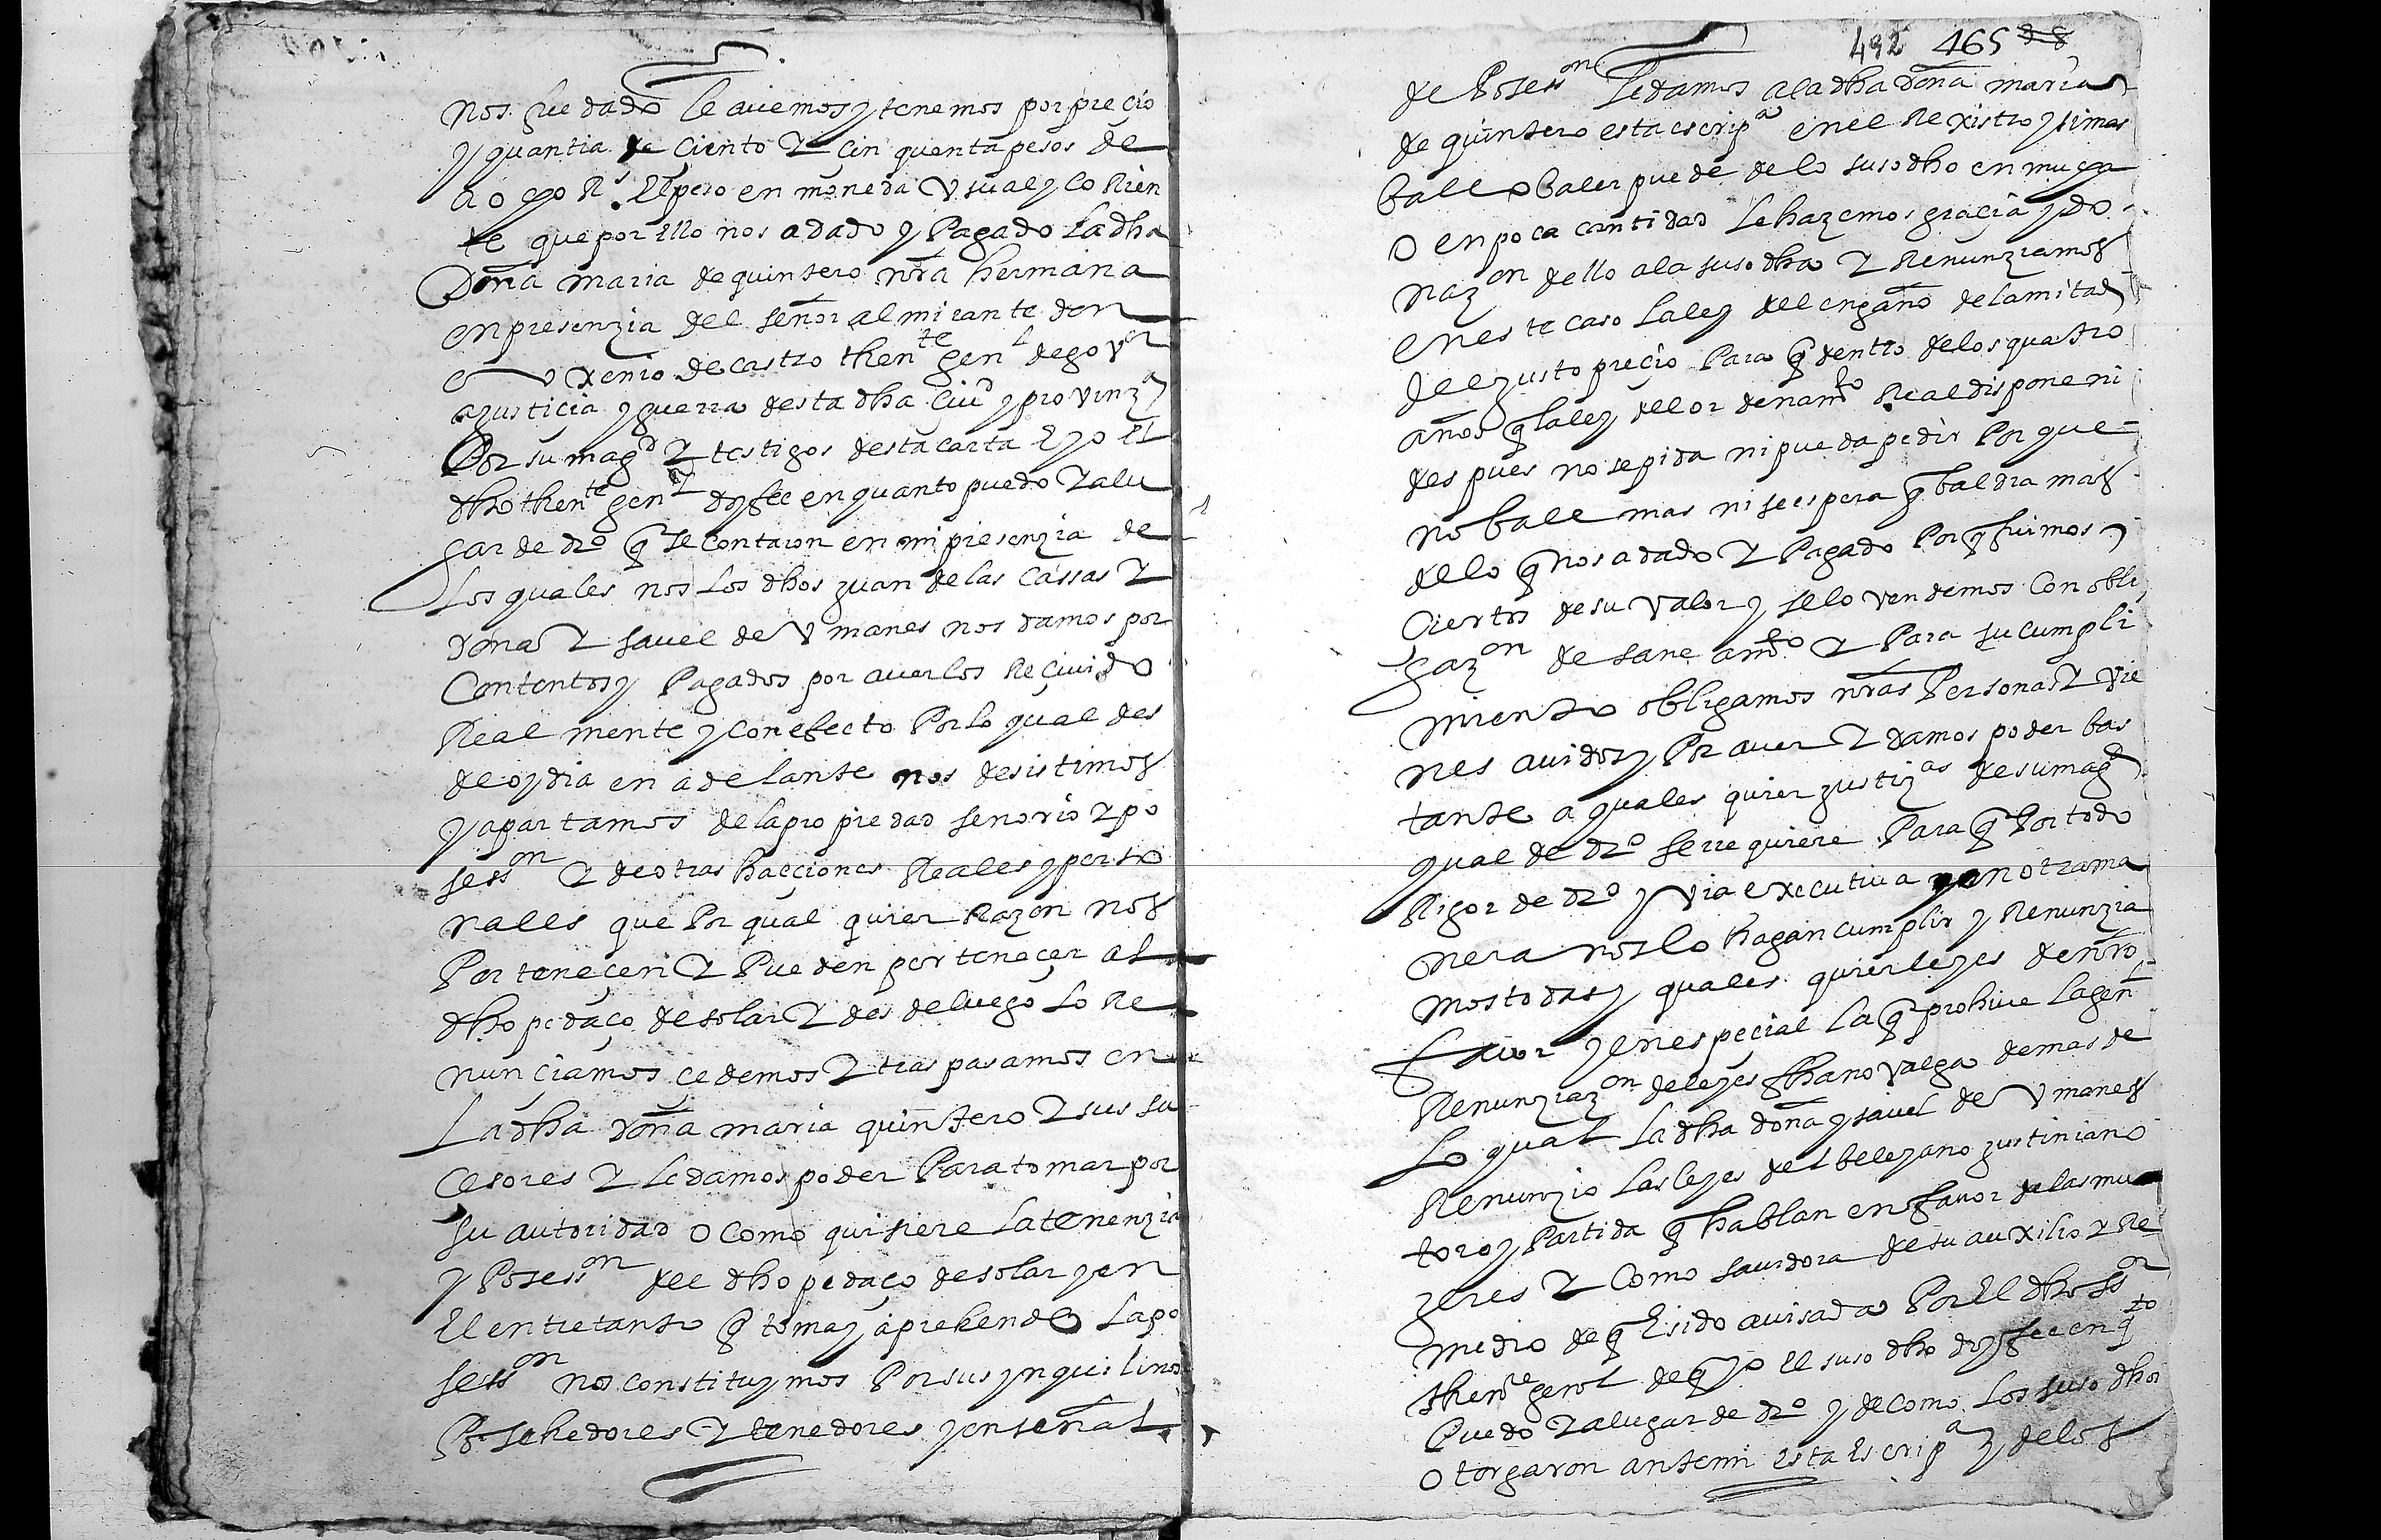 nos fue dado le auemos y tenemos por preçio
y quantia de çiento Y cinquenta pesos de
a ocho Rs. El peso en moneda Usual y coRien
te que por Ello nos a dado y Pagado La dha
Doña maria de quintero nra hermana
en presenzia del señor almirante don
euxenio de castro thente genl de govor
a justiçia y guerra desta dha Ciud y provinza
Por su magd Y testigos desta carta E yo El
dho thente genl doy fee en quanto puedo Y a lu
gar de dro q se contaron en mi presenzia de
Los quales nos Los dhos juan de las Cassas Y
doña Ysauel de Umanes nos damos por
Contentos y Pagados por auerlos Reçiuido
Real mente y con efecto Por lo qual des
de oy dia en adelante nos desistimos
y apartamos de la propiedad señorio Y po
sesson Y de otras haçciones Reales y perso
nales que Por qual quier Razon nos
Perteneçen Y Pueden perteneçer al
dho pedaço de solar Y des de luego lo Re
nunçiamos çedemos Y traspasamos en
La dha doña maria quintero Y sus su
Cesores Y le damos poder Para tomar por
su autoridad o como quisiere la tenenzia
y Posesson del dho pedaço de solar y en
El entretanto q toma y aprehende La po
sesson nos constituymos Por sus ynquilinos
Posehedores Y tenedores y en señal
492 465 38
de Posesson le damos a la dha doña maria
de quintero esta escripa en el Rexistro y si mas
bale o baler puede de lo susodho en mucha
o en poca cantidad le hazemos graçia y do
nazon dello a la susodha Y Renunziamos
en este caso la ley del engaño de la mitad
del justo preçio Para q dentro de los quatro
años q la ley del ordenamto Real dispone ni
despues no se pida ni pueda pedir Por que
no bale mas ni se espera q baldra mas
de lo q nos a dado Y Pagado Por q fuimos
Ciertos de su valor y se lo vendemos Con obli
gazon de saneamto Y Para su cumpli
miento obligamos nras Personas Y vie
nes auidos y Por auer Y damos poder bas
tante a quales quier justizas de su magd
qual de dro se rrequiere Para q Por todo
Rigor de dro y via executiua y en otra ma
nera nos lo hagan cumplir y Renunzia
mos todas y quales quier leyes de nro
fauor y en espeçial la q prohiue la genl
Renunziazon de leyes fha no valga demas de
Lo qual La dha doña ysauel de Umanes
Renunzio las leyes del beleyano justiniano
toro y Partida q hablan en fauor de las mu
zeres Y Como sauidora de su auxilio Y Re
medio de q E sido auisada Por El dho ssor
thente genrl de q yo El susodho doy fee en qto
Puedo Y a lugar de dro y de como Los suso dhos
otorgaron ante mi esta Escripa y de los